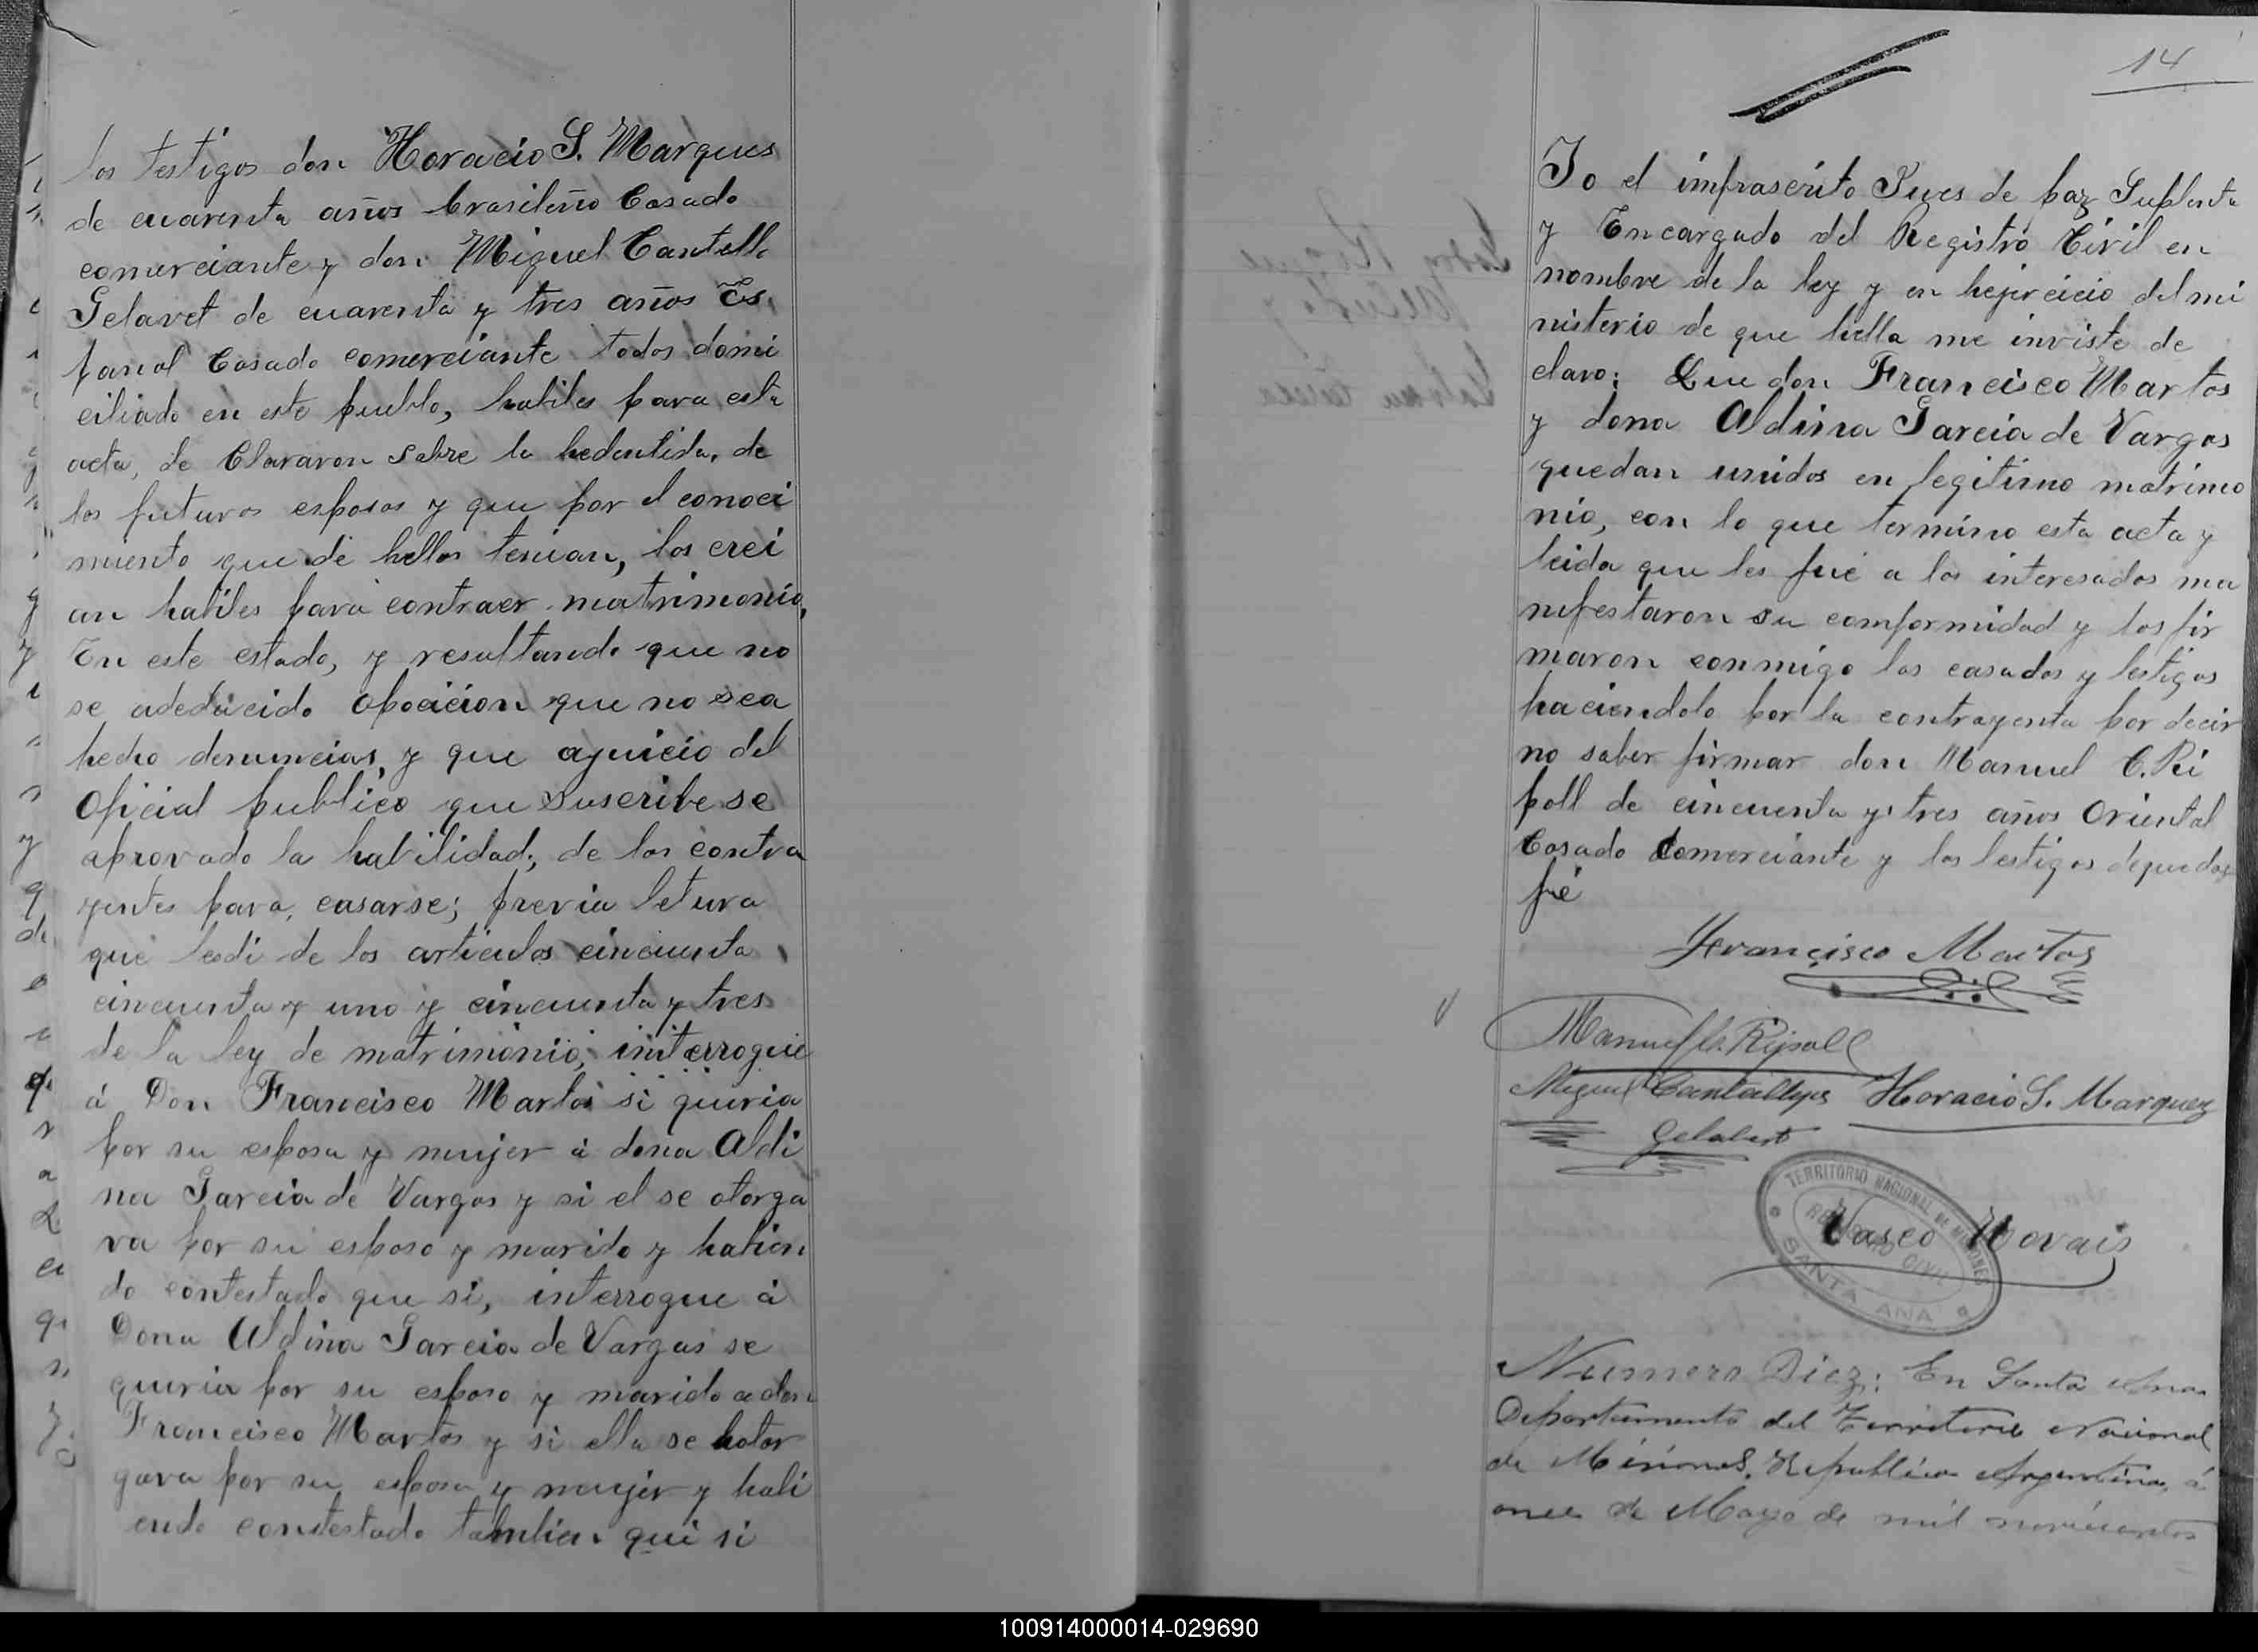 los testigos don Horacio S. Marques
de cuarenta años brasileño Casado
comerciante y don Miguel Cantell
Gelavet de cuarenta y tres años Es
panol Casado comerciante todos domi
ciliado en este pueblo, habiles para esta
acta, de Clararon sobre la hedentida, de
los futuros esposos y que por el conoci
miento que de hellos tenian, los crei
an habiles para contraer matrimonio,
En este estado, y resultando que no
se adeducido oposicion que no sea
hecho denuncias, y que ajuicio del
Oficial publico que suscribe se
aprovado la habilidad, de los contra
yentes para, casarse; previa letura
que lesdi de los articulos cincuenta
cincuenta y uno y cincuenta y tres
de la ley de matrimonio, interrogue
á Don Francisco Martos si queria
por su esposa y mujer á dona Aldi
na Garcia de Vargas y si el se otorga
va por su esposo y marido y habien
do contestado que si, interrogue á
Dona Aldina Garcia de Vargas se
queria por su esposo y marido a don
Francisco Martos y si ella se hotor
gava por su esposa y mujer y habi
endo contestado tambien que si
14
Io el imfrascrito Jues de paz Suplente
y Encargado del Registro Civil en
nombre de la ley y en hejercicio del mi
nisterio de que hella me inviste de
claro: Que don Francisco Martos
y dona Aldina Garcia de Vargas
quedan unidos en legitimo matrimo
nio, con lo que termino esta acta y
leida que les fué a los interesados ma
nifestaron su comformidad y los fir
maron conmigo los casados y testigos
haciendolo por la contrayenta por decir
no saber firmar don Manuel C. Ri
poll de cincuenta y tres años Oriental
Casado Comerciante y los testigos dequedoy
fé
Francisco Martos
Manuel C. Ripoll
Miguel Cantallops Horacio S. Marquez
Gelabert
TERRITORIO NACIONAL DE MISIONES
REGISTRO CIVIL
SANTA ANA
Vasco Novais
Numero Diez: En Santa Ana
Departamento del Territorio Nacional
de Misiones, Republica Argentina, á
once de Mayo de mil novecientos
100914000014-029690